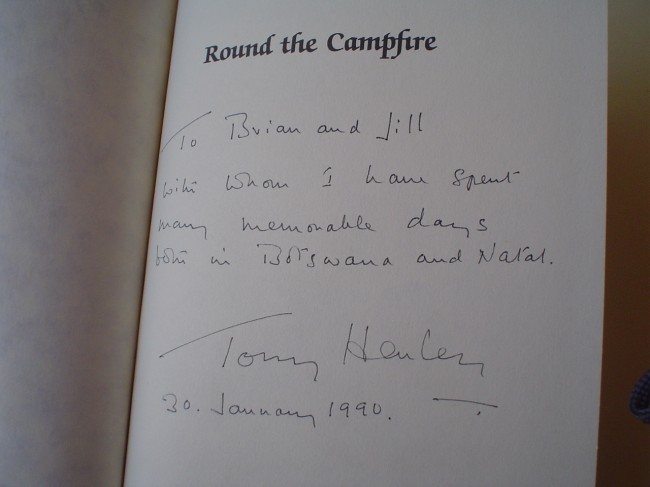 Round the Campfire
To Brian and Jill
with whom I have spent
many memorable days
both in Botswana and Natal.
Tony Henley
30. January 1990.